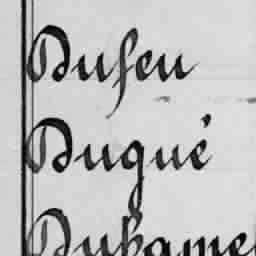 Dufeu
Dugué
Duhamel